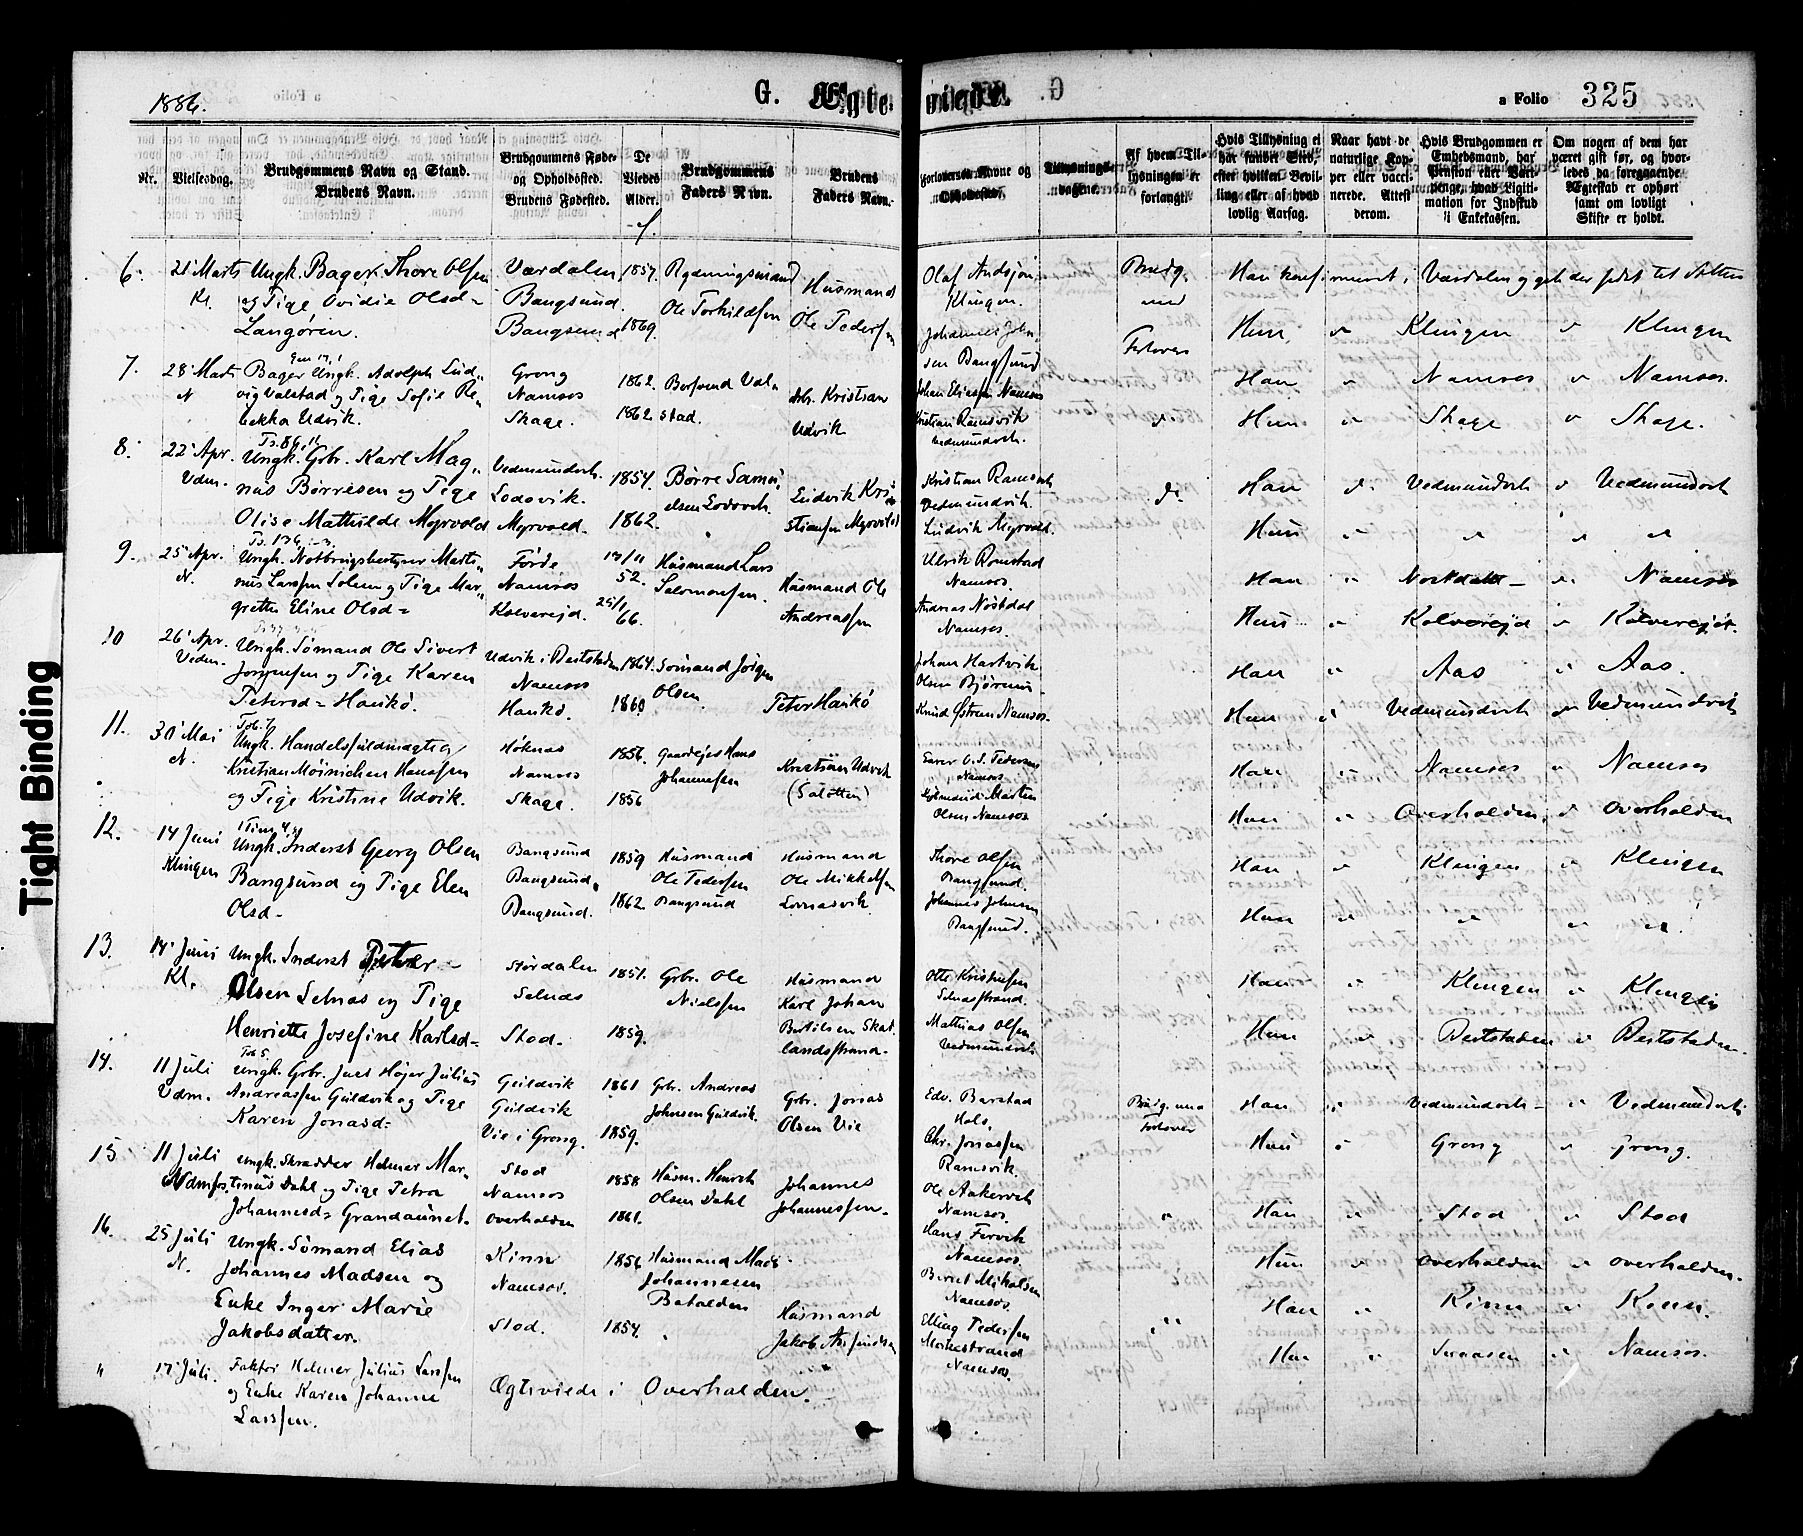 Tight Binding
1886.
G. Ægteviede.
a Folio 325
Nr.
Vielsesdag.
Brudgommens Navn og Stand.
Brudens Navn.
Brudgommens Føde-
og Opholdssted.
Brudens Fødested.
De
Viedes
Alder.
Brudgommens
Faders Navn.
Brudens
Faders Navn.
Forlovernes Navne og
Opholdssted.
Tillysnings-
dagene.
Af hvem Til-
lysningen er
forlangt.
Hvis Tillysning ei
har fundet Sted,
efter hvilken Bevil-
ling eller af hvad
lovlig Aarsag.
Naar havt de
naturlige Kop-
per eller vacci-
nerede. Attest
derom.
Hvis Brudgommen er
Embedsmand, har
Pension eller Vart-
penge, hvad Ligiti-
mation for Indskud
i Enkekassen.
Om nogen af dem har
været gift før, og hvor-
ledes da foregaaende
Ægteskab er ophørt
samt om lovligt
Skifte er holdt.
6. 21 Marts Kl.
Ungk. Bager Thore Olsen
og Pige Ovidie Olsd=
Langøren.
Værdalen
Bangsund.
Bangsund
1857.
1869.
Rydningsmand
Ole Torkildsen
Husmand
Ole Pedersen
Olaf
Klingen.
Johannes John
sen Bangsund
Brudg.
med
Forlover
Han konfirmeret i Værdalen og gik der sidst til Alters
Hun " Klingen " Klingen
7. 28 Marts N
Bager Ungk. Adolph Lud-
vig Valstad og Pige Sofie Re-
bekka Udvik.
Grong
Namsos
Skage.
1862.
1862
Valstad
Kristian
Udvik
Johan Eliesen Namsos
Kristian Ramsvik
Vedmundvik.
Han " Namsos " Namsos.
Hun " Skage " Skage.
8. 22 Apr. Vdm.
Ungk. Grbr. Karl Mag-
nus Børresen og Pige
Olise Mathilde Myrvold
Vedmundvik.
Lodovik.
Myrvold.
1854.
1862.
Børre Samu-
elsen Lodovik.
Ludvik Kri-
stiansen Myrvold
Kristian Ramsvik
Vedmundvik.
Ludvik Myrvold.
Han " Vedmundvik " Vedmundvik
Hun " " " "
9. 25 Apr. N.
Ungk. Notbrugsbestyrer Marti-
nus Larssen Solem og Pige Mar-
grethe Eline Olsd=
Førde
Namsos
Kolvereid.
13/11
52.
25/1
66.
Husmand Lars
Salomonsen.
Husmand Ole
Andreassen
Ulrik Romstad
Namsos.
Andreas Nøstdal
Namsos.
Han " " Namsos
Hun " Kolvereid " Kolvereid.
10 26 Apr. Vedm.
Ungk. Sømand Ole Sivert
Jørgensen og Pige Karen
Petersd= Haukø.
Udvik i Beitstaden
Namsos
Haukø.
1864.
1860
Sømand Jørgen
Olsen.
Peter Haukø
Johan Hartvik
Olsen
Knud Namsos.
Han " Aas " Aas.
Hun " Vedmundvik " Vedmundvik
11. 30 Mai N.
Ungk. Handelsfuldmægtig
Kristian Møinichen Hanssen
og Pige Kristine Udvik.
Høknes
Namsos
Skage.
1856.
1856
Gaardejer Hans
Johannessen
Kristian Udvik
O. S. Pedersen
Namsos
Martin
Olsen Namsos
Han " Namsos " Namsos
Hun " Overhalden, " Overhalden
12. 14 Juni Klingen
Ungk. Inderst Georg Olsen
Bangsund og Pige Elen
Olsd-
Bangsund
Bangsund.
Bangsund.
1859
1862.
Husmand
Ole Pedersen
Bangsund
Husmand
Ole Mikkelsen
Lornæsvik.
Thore Olsen
Bangsund.
Johannes Johnsen
Bangsund.
Han " Klingen " Klingen
Hun " " " "
13. 14 Juni Kl.
Ungk. Inderst Petter
Olsen Selnæs og Pige
Henriette Josefine Karlsd=
Størdalen
Selnæs
Stod.
1851.
1859.
Grbr. Ole
Nielssen
Husmand
Karl Johan
Bertilsen Skat
landsstrand.
Otte Kristofersen
Selnæsstrand.
Mathias Olsen
Vedmundvik
Han " Klingen " Klingen
Hun " Beitstaden " Beitstaden.
14. 11 Juli Vdm.
Ungk. Grbr. Juel Højer Julius
Andreassen Guldvik og Pige
Karen Jonasd=
Guldvik
Guldvik
Vie i Grong.
1861
1859.
Grbr. Andreas
Johnsen Guldvik.
Grbr. Jonas
Olsen Vie
Edv. Barstad
Hals,
Chr. Jonassen
Ramsvik.
Brudg. med
Forlover
Han " Vedmundvik " Vedmundvik.
Hun " Grong " Grong.
15 11 Juli
Ungk. Skrædder Helmer Mar-
tinus Dahl og Pige Petra
Johannesd= Grandaunet.
Stod
Namsos
Overhalden
1858
1861.
Husm. Henrik
Olsen Dahl
Johannes
Johannessen.
Ole Aakervik
Namsos.
Hans Fervik
Namsos.
Han " Stod " Stod
Hun " Overhalden " Overhalden.
16. 25 Juli N.
Ungk. Sømand Elias
Johannes Madsen og
Enke Inger Marie
Jakobsdatter.
Kinn
Namsos.
Stod.
1856
1854.
Husmand Mads
Johannesen
Batalden
Husmand
Jakob
Bernt Mikalsen
Namsos.
Elling Pedersen
Merkestrand
Namsos.
Han " Kinn " Kinn.
Hun " " Namsos.
" 17 Juli.
Faktor Helmer Julius Larssen
og Enke Karen Johanne
Larssen.
Ægteviede i Overhalden.